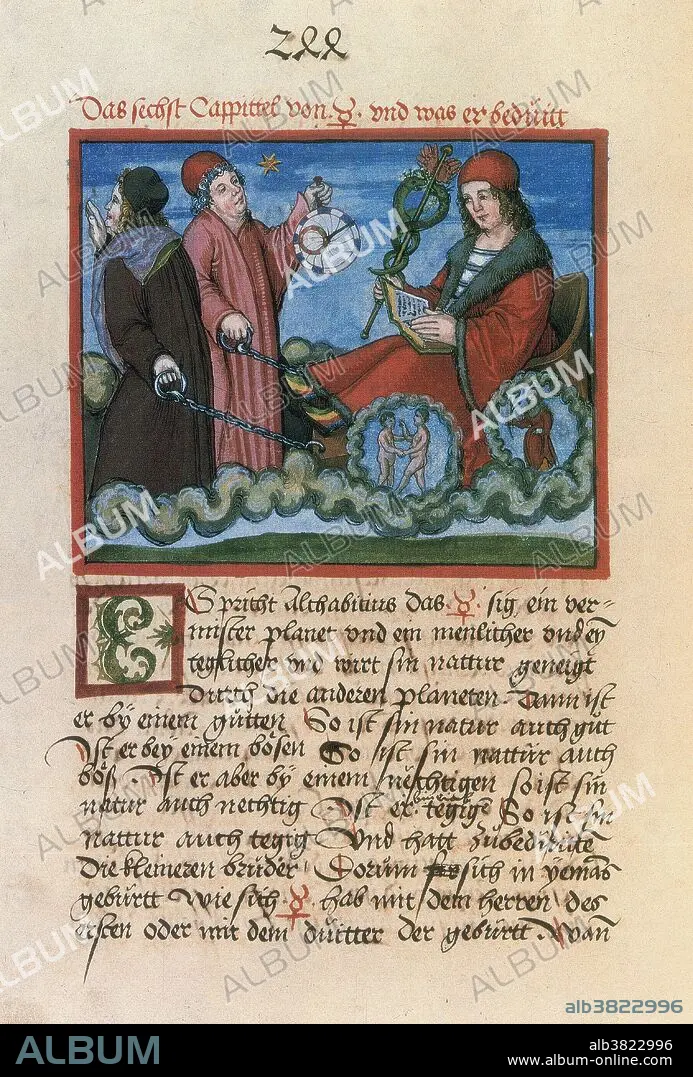 Das sechst Cappittel von ☿ vnd was er bedütt
ES spricht Althabitius das ☿ sig ein ver=
mister planet vnd ein menlicher vnd ey
teglicher vnd wirt sin nattur geneigt
durch die anderen planeten Dann ist
er by einem gütten So ist sin natur auch güt
Ist er bey einem bösen So ist sin nattür auch
bös Ist er aber by einem nechtigen so ist sin
natur auch nechtig Ist er tegig So ist sin
nattur auch tegig Vnd hatt zübedütte
die kleineren brüder Dorüm sich in yemas
gebürtt wie sich ☿ hab mit dem herren des
ersten oder mit dem düitter der gebürtt Wan
ALBUM
alb3822996
ALBUM
alb3822996
www.album-online.com